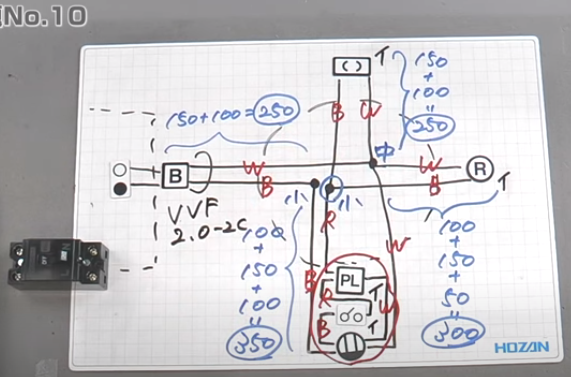 No.10
( )
T
150
+
100
=
250
150+100=250
B
W
中
W
B
R
T
B
W
B
VVF
2.0-2C
小
小
R
W
100
+
150
+
100
=
350
B
PL
R
T
W
B
T
100
+
150
+
50
=
300
HOZAN